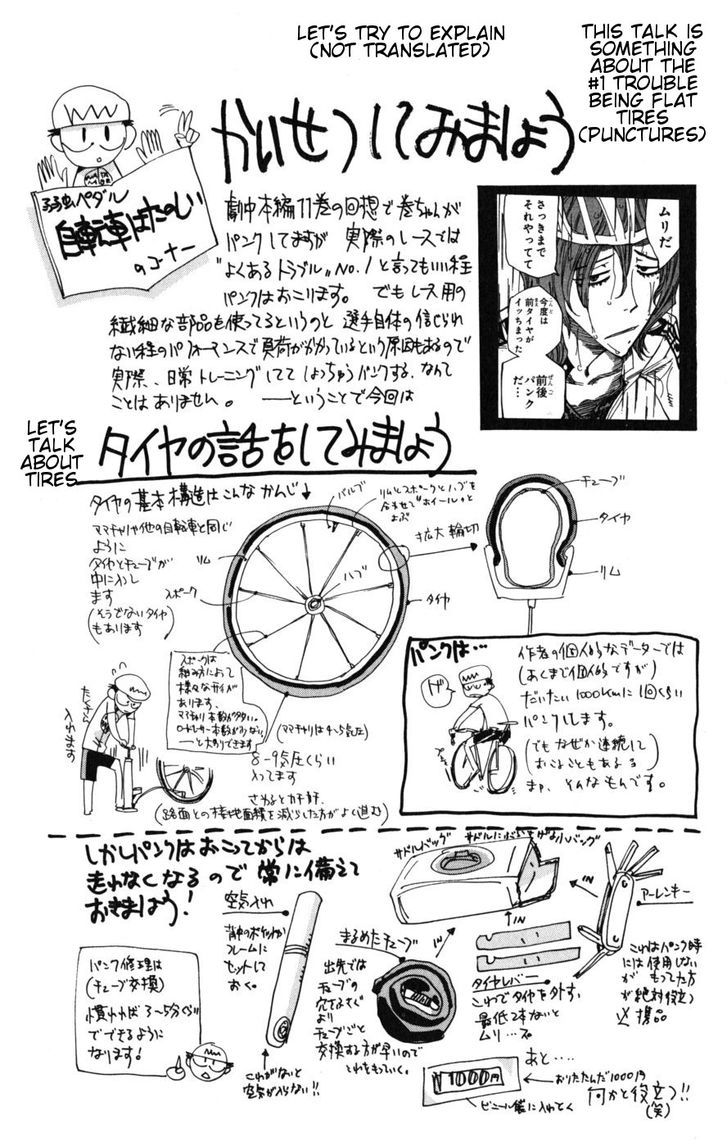 LET'S TRY TO EXPLAIN
(NOT TRANSLATED)
THIS TALK IS
SOMETHING
ABOUT THE
#1 TROUBLE
BEING FLAT
TIRES
(PUNCTURES)
かいせつしてみましょう
弱虫ペダル
自転車はたのしい
のコーナー
劇中本編11巻の回想で巻ちゃんが
パンクしてますが 実際のレースでは
"よくあるトラブル" No.1と言ってもいい程
パンクはおこります。 でもレース用の
繊細な部品を使ってるというのと 選手自体の信じられ
ない程のパフォーマンスで負荷がかかっているという原因もあるので
実際、日常トレーニングしてて しょっちゅうパンクする、なんて
ことはありません。 ――ということで今回は
ムリだ
さっきまで
それやってて
今度は
前タイヤが
イッちまった
前後
パンク
だ…
LET'S
TALK
ABOUT
TIRES
タイヤの話をしてみましょう
タイヤの基本構造はこんなかんじ↓
ママチャリや他の自転車と同じ
ように
タイヤとチューブが
中に入りし
ます
(そうでないタイヤ
もあります)
バルブ
リムとスポークとハブを
合わせて"ホイール"と
よぶ
リム
スポーク
ハブ
タイヤ
拡大 輪切
チューブ
タイヤ
リム
スポークは
組み方によって
様々なタイプが
あります。
ママチャリ 本数が多い。
ロードレーサー 本数が少ない
――と大別できます
(ママチャリは4〜5気圧)
8-9気圧くらい
入ってます
さわるとカチカチ。
(路面との接地面積を減らした方がよく進む)
たくさん
入れます
パンクは…
作者の個人的なデーターでは
(あくまで個人的ですが)
だいたい1000kmに1回くらい
パンクします。
(でもなぜか連続して
おこることもあるる)
まァ、そんなもんです。
しかしパンクはおこってからは
走れなくなるので 常に備えて
おきましょう!
パンク修理は
(チューブ交換)
慣れれば3〜5分ぐらい
でできるように
なります!
空気入れ
背中のポケットか
フレームに
セットして
おく。
これがないと
空気が入らない!!
まるめたチューブ
出先では
チューブの
穴をふさぐ
より
チューブごと
交換する方が早いので
これをもっていく。
サドルバッグ
サドルにぶらさげる小バッグ
IN
IN
IN
タイヤレバー
これでタイヤを外す。
最低2本ないと
ムリ…
アーレンキー
これはパンク時
には使用しない
が もってた方
が絶対役立つ
必携品
あと…
¥1000円
おりたたんだ1000円
ビニール袋に入れとく
何かと役立つ!!
(笑)